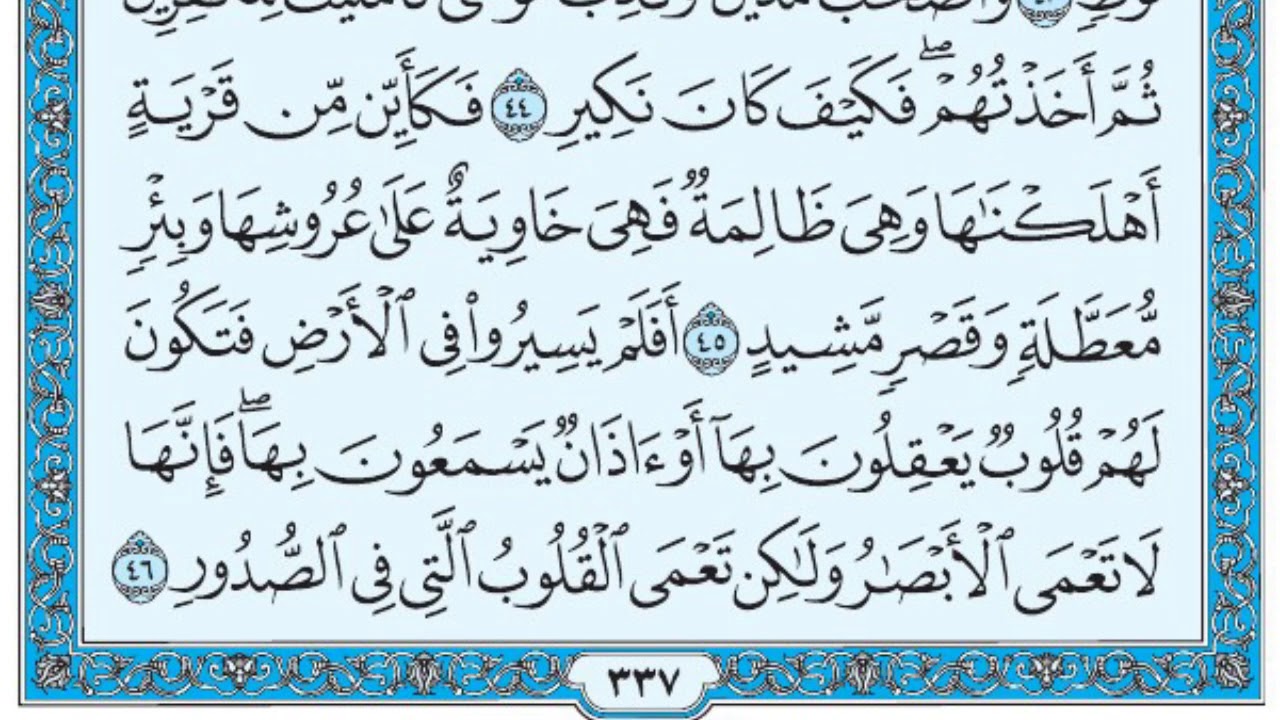 لُوطٍ ٤٣ وَأَصْحَٰبُ مَدْيَنَ وَكُذِّبَ مُوسَىٰ فَأَمْلَيْتُ لِلْكَٰفِرِينَ
ثُمَّ أَخَذْتُهُمْ ۖ فَكَيْفَ كَانَ نَكِيرِ ٤٤ فَكَأَيِّن مِّن قَرْيَةٍ
أَهْلَكْنَٰهَا وَهِىَ ظَالِمَةٌ فَهِىَ خَاوِيَةٌ عَلَىٰ عُرُوشِهَا وَبِئْرٍ
مُّعَطَّلَةٍ وَقَصْرٍ مَّشِيدٍ ٤٥ أَفَلَمْ يَسِيرُوا۟ فِى ٱلْأَرْضِ فَتَكُونَ
لَهُمْ قُلُوبٌ يَعْقِلُونَ بِهَآ أَوْ ءَاذَانٌ يَسْمَعُونَ بِهَا ۖ فَإِنَّهَا
لَا تَعْمَى ٱلْأَبْصَٰرُ وَلَٰكِن تَعْمَى ٱلْقُلُوبُ ٱلَّتِى فِى ٱلصُّدُورِ ٤٦
٣٣٧